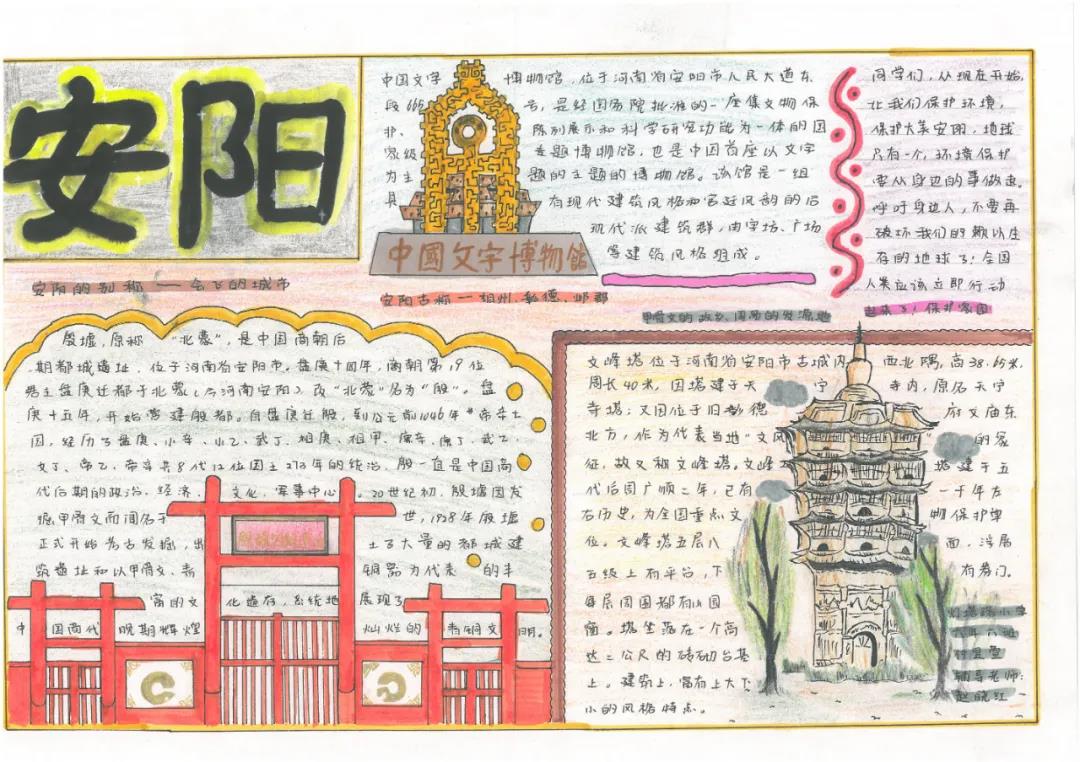 安阳
中国文字博物馆,位于河南省安阳市人民大道东
段665号,是经国务院批准的一座集文物保
护、陈列展示和科学研究功能为一体的国
家级专题博物馆,也是中国首座以文字
为主题的主题的博物馆。该馆是一组
具有现代建筑风格和宫廷风韵的后
现代派建筑群,由字坊、广场
等建筑风格组成。
中國文字博物館
同学们,从现在开始,
让我们保护环境,
保护大美安阳,地球
只有一个,环境保护
要从身边的事做起。
呼吁身边人,不要再
破坏我们的赖以生
存的地球了!全国
人类应该立即行动
起来了!保护家园
安阳的别称——会飞的城市
安阳古称——相州、彰德、邺郡
甲骨文的故乡,周易的发源地
殷墟,原称“北蒙”,是中国商朝后
期都城遗址,位于河南省安阳市。盘庚十四年,商朝第19位
君主盘庚迁都于北蒙(今河南安阳),改“北蒙”名为“殷”。盘
庚十五年,开始营建殷都。自盘庚迁殷,到公元前1046年帝辛亡
国,经历了盘庚、小辛、小乙、武丁、祖庚、祖甲、廪辛、康丁、武乙
文丁、帝乙、帝辛共8代12位国王273年的统治,殷一直是中国商
代后期的政治、经济、文化、军事中心。20世纪初,殷墟因发
掘甲骨文而闻名于世,1928年殷墟
正式开始考古发掘,出土了大量的都城建
筑遗址和以甲骨文、青铜器为代表的丰
富的文化遗存,系统地展现了
中国商代晚期辉煌灿烂的青铜文明。
文峰塔位于河南省安阳市古城内西北隅,高38.65米,
周长40米,因塔建于天宁寺内,原名天宁
寺塔;又因位于旧彰德府文庙东
北方,作为代表当地“文风”的象
征,故又称文峰塔。文峰塔建于五
代后周广顺二年,已有一千年左
右历史,为全国重点文物保护单
位。文峰塔五层八面,浮屠
五级上有平台,下有券门。
每层周围都有小圆
窗。塔坐落在一个高
达二公尺的砖砌台基
上。建筑上,富有上大下
小的风格特点。
灯塔路小学
六年六班
辅导老师: